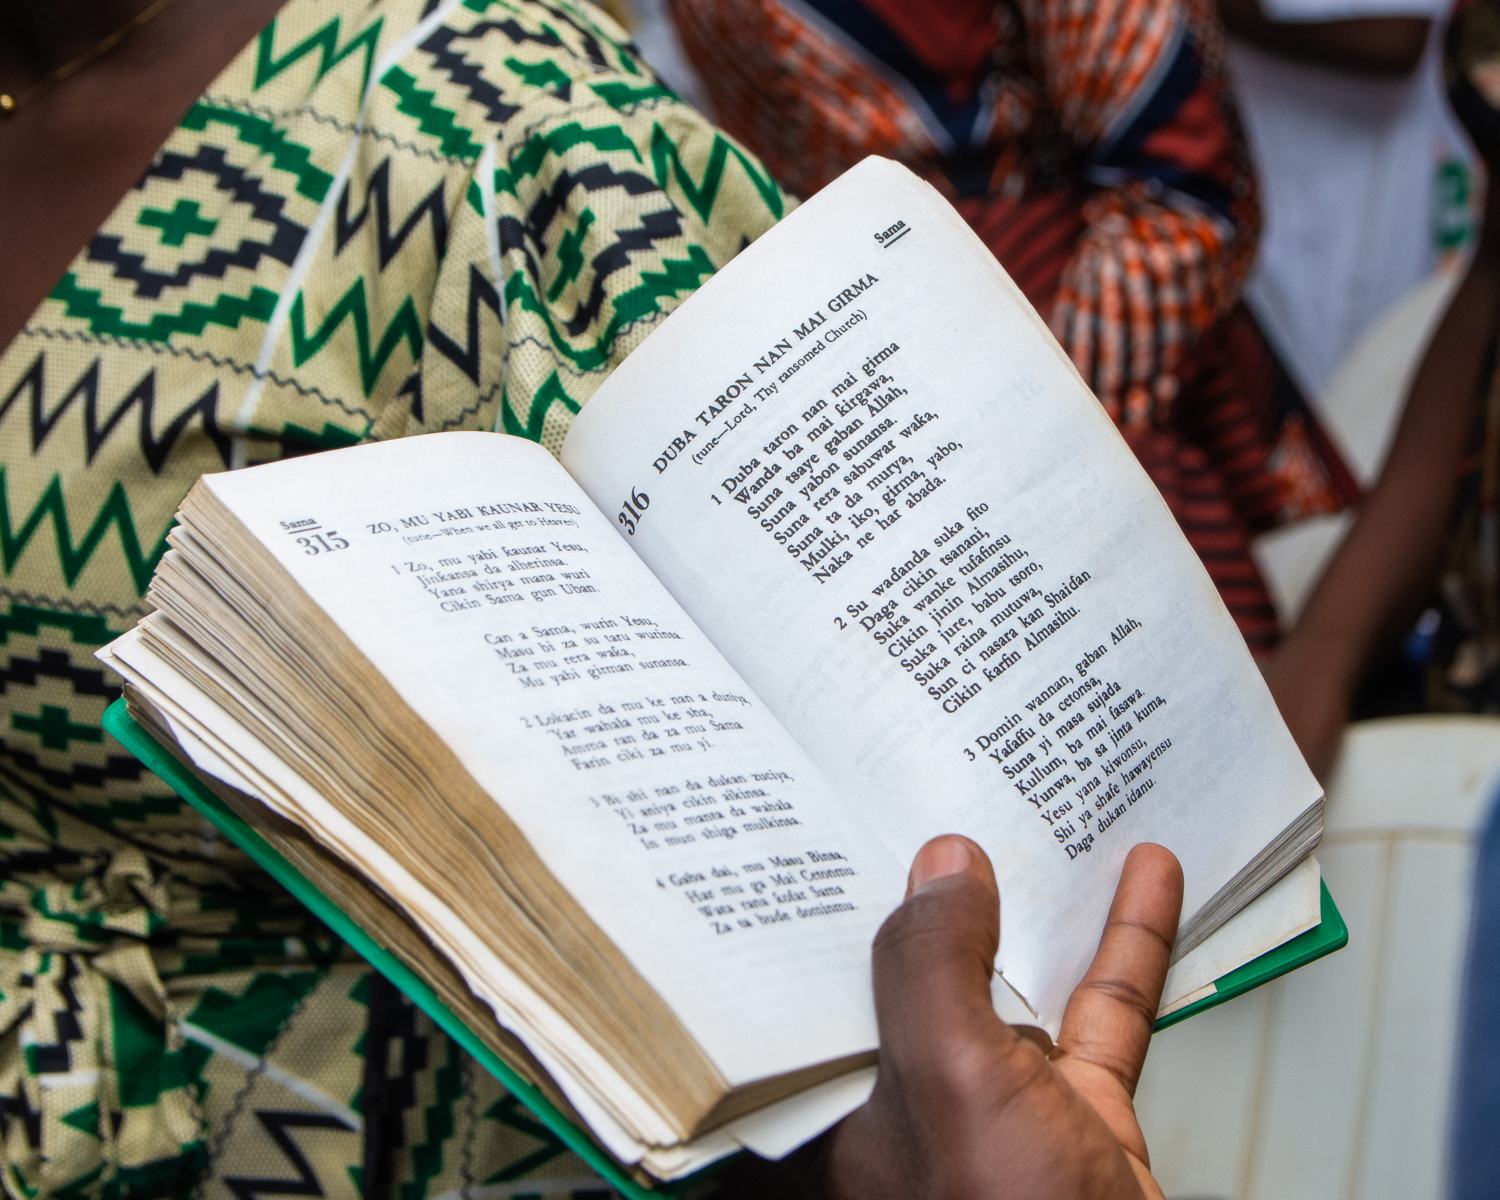 Sama
315 ZO, MU YABI ƘAUNAR YESU
(tune—When we all get to Heaven)
1 Zo, mu yabi ƙaunar Yesu,
Jinkansa da alherinsa.
Yana shirya mana wuri
Cikin Sama gun Uban.
Can a Sama, wurin Yesu,
Masu bi za su taru wurinsa.
Za mu rera waka,
Mu yabi girman sunansa.
2 Lokacin da mu ke nan a duniya,
'Yar wahala mu ke sha,
Amma ran da za mu Sama
Farin ciki za mu yi.
3 Bi shi nan da dukan zuciya,
Yi aniya cikin aikinsa.
Za mu manta da wahala
In mun shiga mulkinsa.
4 Gaba dai, mu Masu Binsa,
Har mu ga Mai Cetonmu.
Wata rana ƙofar Sama
Za ta bude dominmu.
Sama
316 DUBA TARON NAN MAI GIRMA
(tune—Lord, Thy ransomed Church)
1 Duba taron nan mai girma
Wanda ba mai ƙirgawa,
Suna tsaye gaban Allah,
Suna yabon sunansa.
Suna rera sabuwar waka,
Suna ta da murya,
Mulki, iko, girma, yabo,
Naka ne har abada.
2 Su waɗanda suka fito
Daga cikin tsanani,
Suka wanke tufafinsu
Cikin jinin Almasihu,
Suka jure, babu tsoro,
Suka raina mutuwa,
Sun ci nasara kan Shaiɗan
Cikin karfin Almasihu.
3 Domin wannan, gaban Allah,
Yafaffu da cetonsa,
Suna yi masa sujada
Kullum, ba mai fasawa.
Yunwa, ba sa jinta kuma,
Yesu yana kiwonsu,
Shi ya shafe hawayensu
Daga dukan idanu.